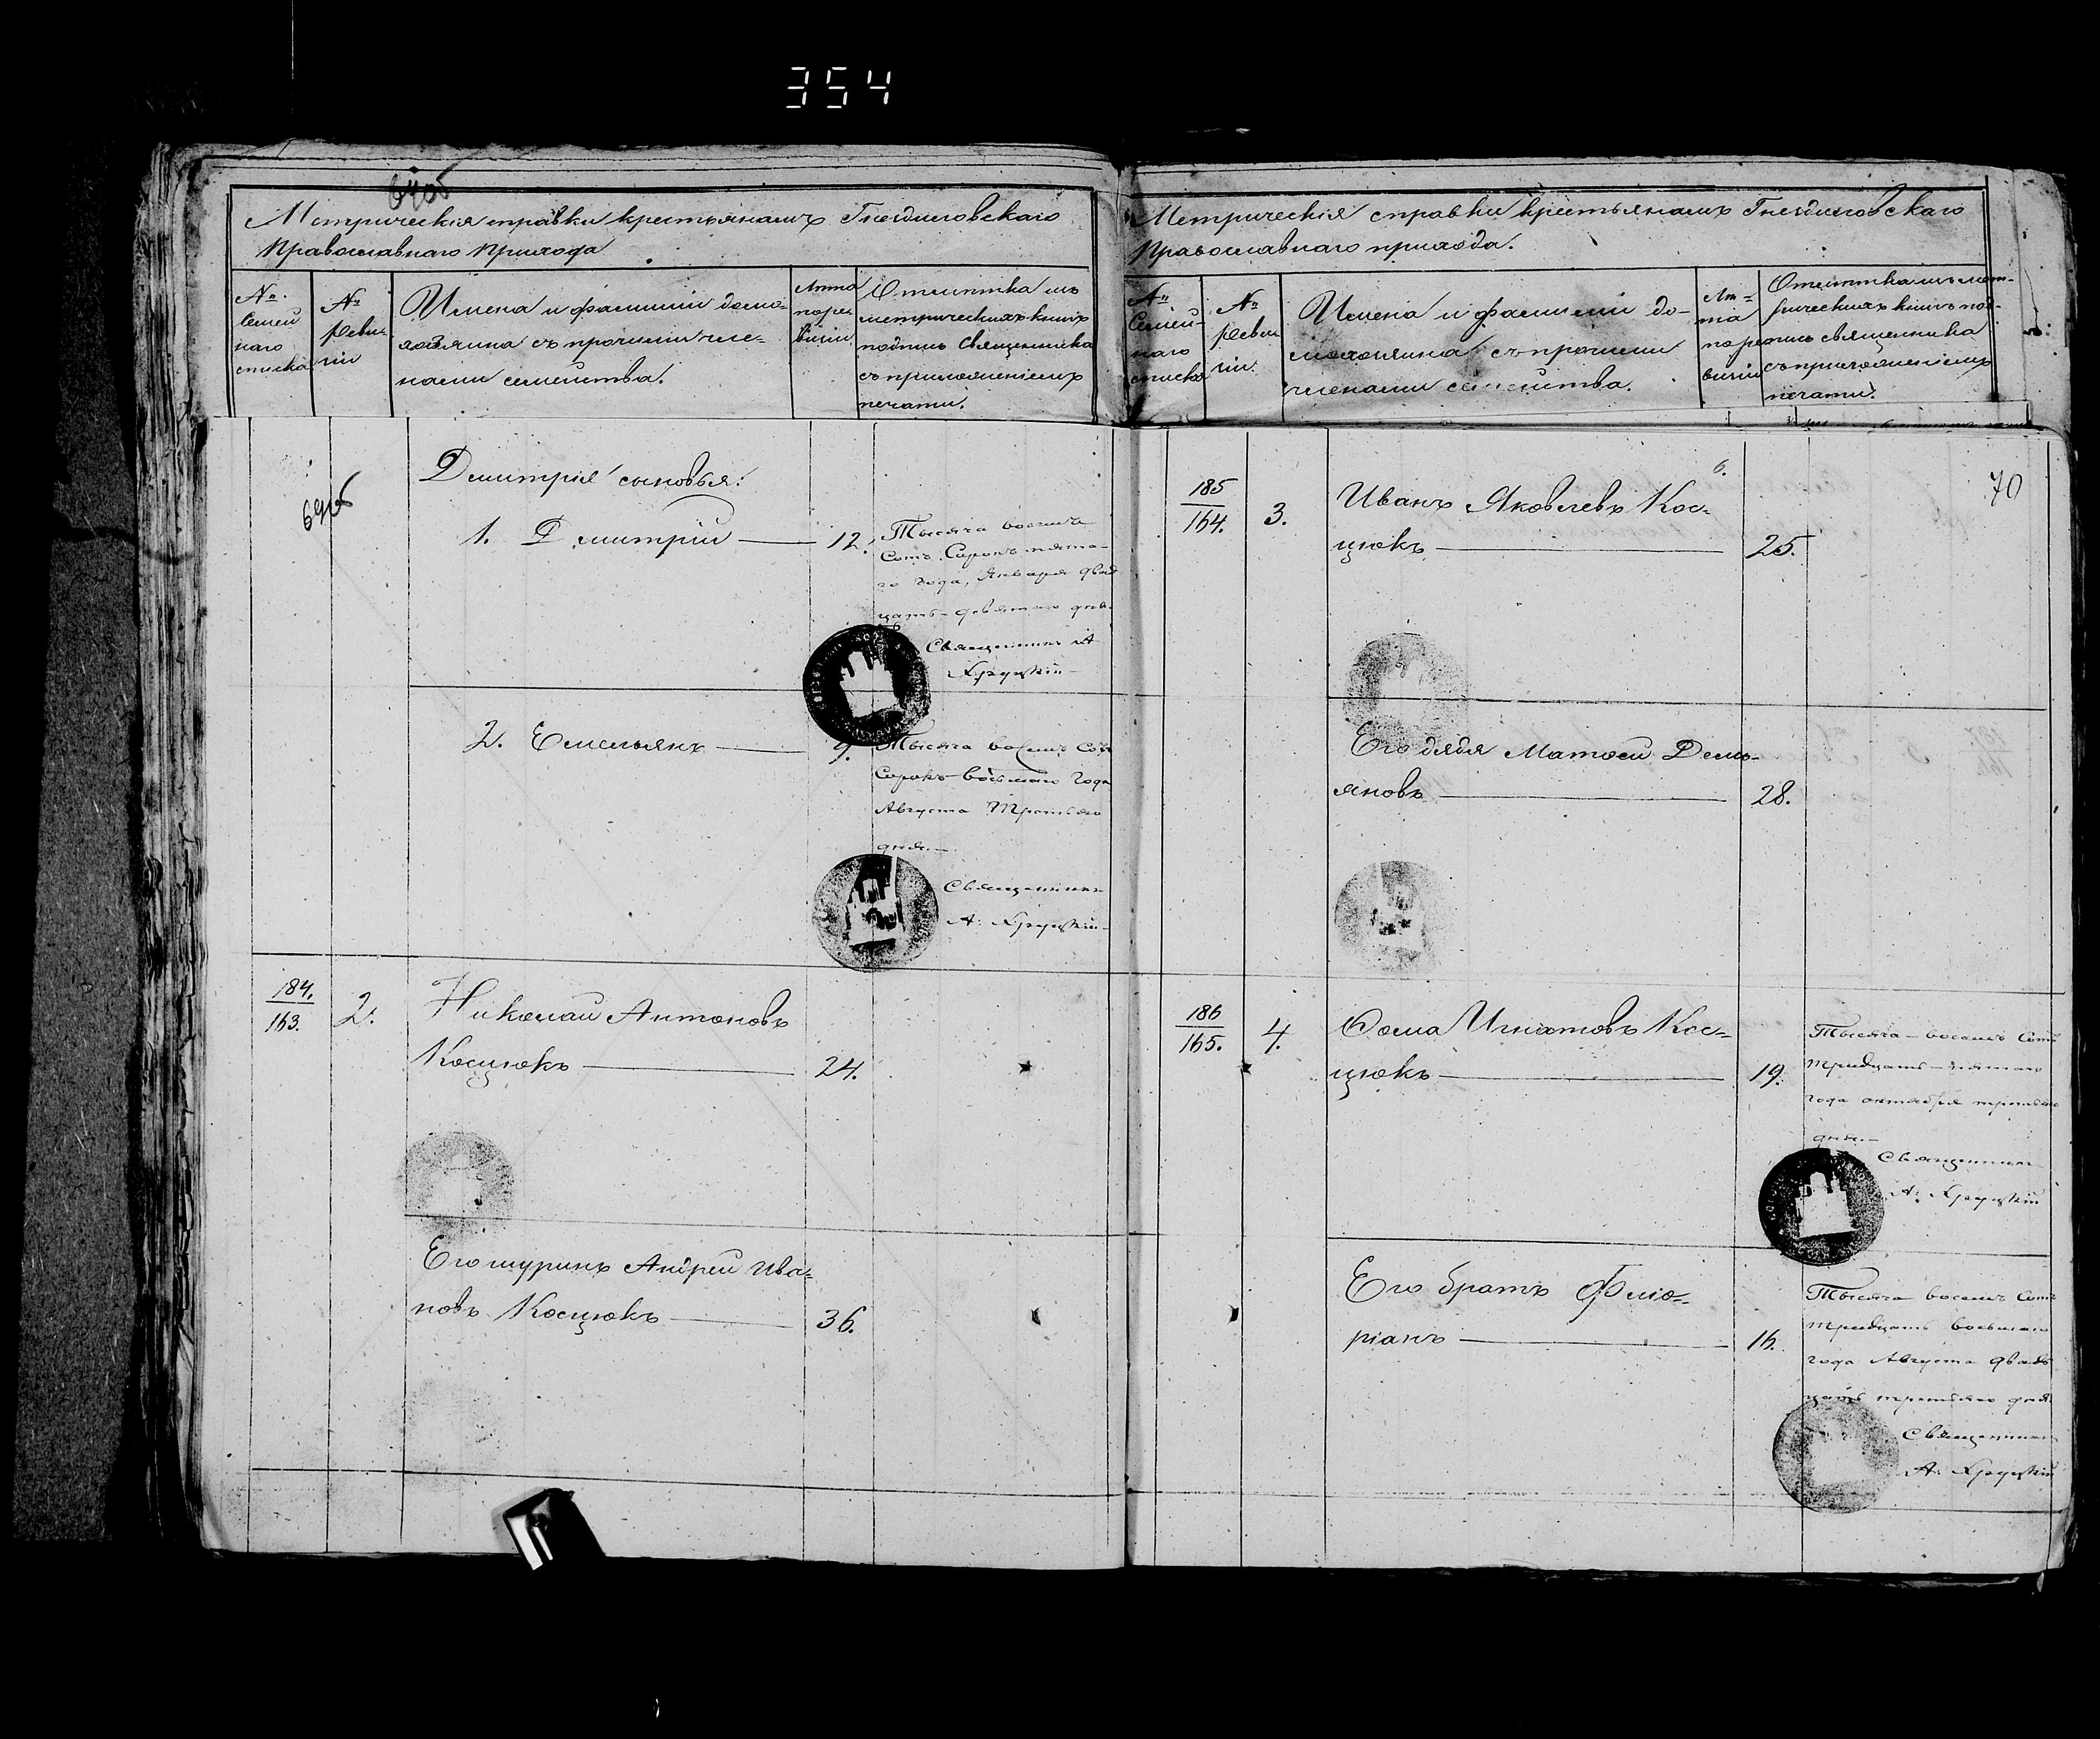 354
69об
Метрическія справки крестьянамъ Гнездиловскаго
Православнаго Прихода
№
Семей
наго
списка
№
Реви-
зіи
Имена и фамиліи домо-
хозяина съ прочими чле-
нами семейства.
Лета
по ре
визіи
Отметка изъ
метрическихъ книгъ
подпись Священника
съ приложеніемъ
печати.
69об
Дмитрія сыновья:
1. Дмитрій — 12.
Тысяча восемь
Сотъ Сорокъ пято-
го года, Января двад
цать-девятаго дня.
Священникъ А
2. Емельянъ — 9.
Тысяча восемь Сотъ
Сорокъ-восьмаго Года
Августа Третьяго
дня.—
Священникъ
А.
184.
163.
2.
Николай Антоновъ
Косцюкъ — 24.
Его шуринъ Андрей Ива-
новъ Косцюкъ — 36.
Метрическія справки крестьянамъ Гнездиловскаго
Православнаго прихода.
№
Семей-
наго
списка
№
Реви
зіи.
Имена и фамиліи до-
мохозяина съ прочими
членами семейства.
Ле-
та
по ре
визіи
Отметка изъ мет-
рическихъ книгъ под-
пись священника
съ приложеніемъ
печати.
70
185
164.
3.
6.
Иванъ Яковлевъ Кос-
цюкъ — 25.
Его дядя Матвей Демь-
яновъ — 28.
186
165.
4.
Фома Игнатовъ Кос-
цюкъ — 19.
Тысяча-восемь Сотъ
тридцать-пятаго
года октября третьяго
дня.—
Священникъ
А.
Его братъ Флю-
ріанъ — 16.
Тысяча восемь Сотъ
тридцать восьмаго
года Августа двад-
цать третьяго дня
Священникъ
А.